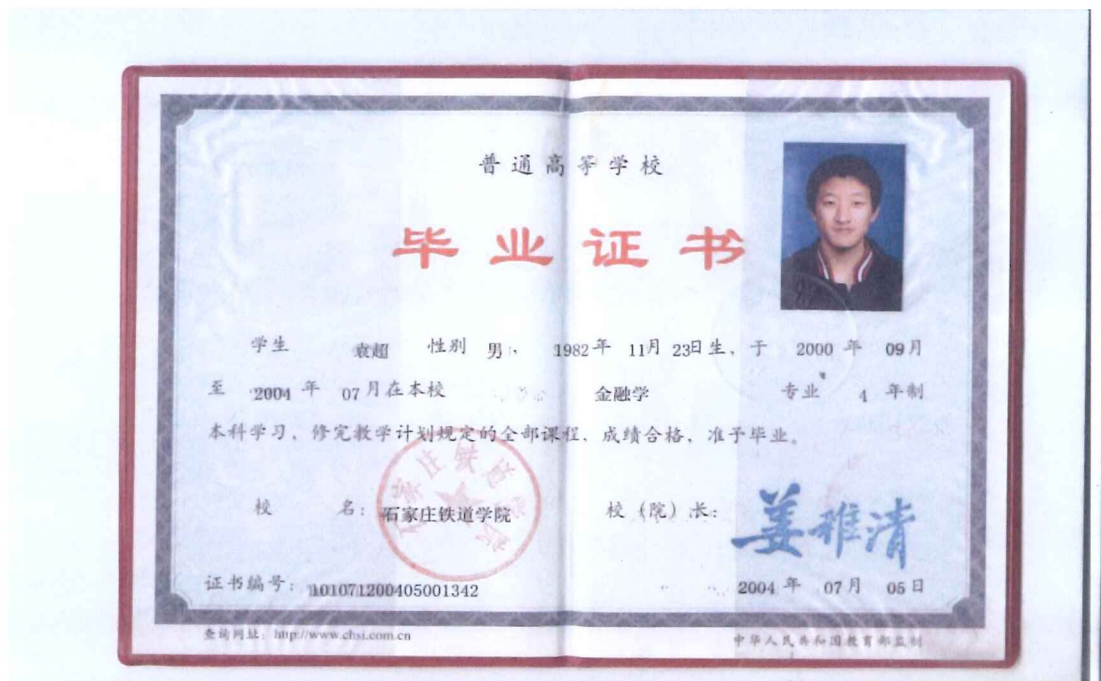 普通高等学校
毕业证书
学生 袁超 性别 男, 1982年 11月 23日生, 于 2000 年 09月
至 2004 年 07月在本校 金融学 专业 4 年制
本科学习, 修完教学计划规定的全部课程, 成绩合格, 准予毕业。
校 名: 石家庄铁道学院 校(院)长: 姜稚清
石家庄铁道学院
证书编号: 101071200405001342 2004 年 07月 05日
查询网址: http://www.chsi.com.cn 中华人民共和国教育部监制